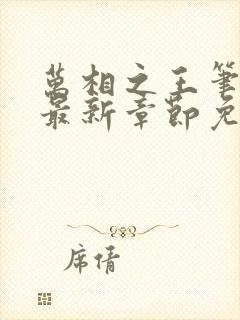 萬相之王筆
最新章節免
席情